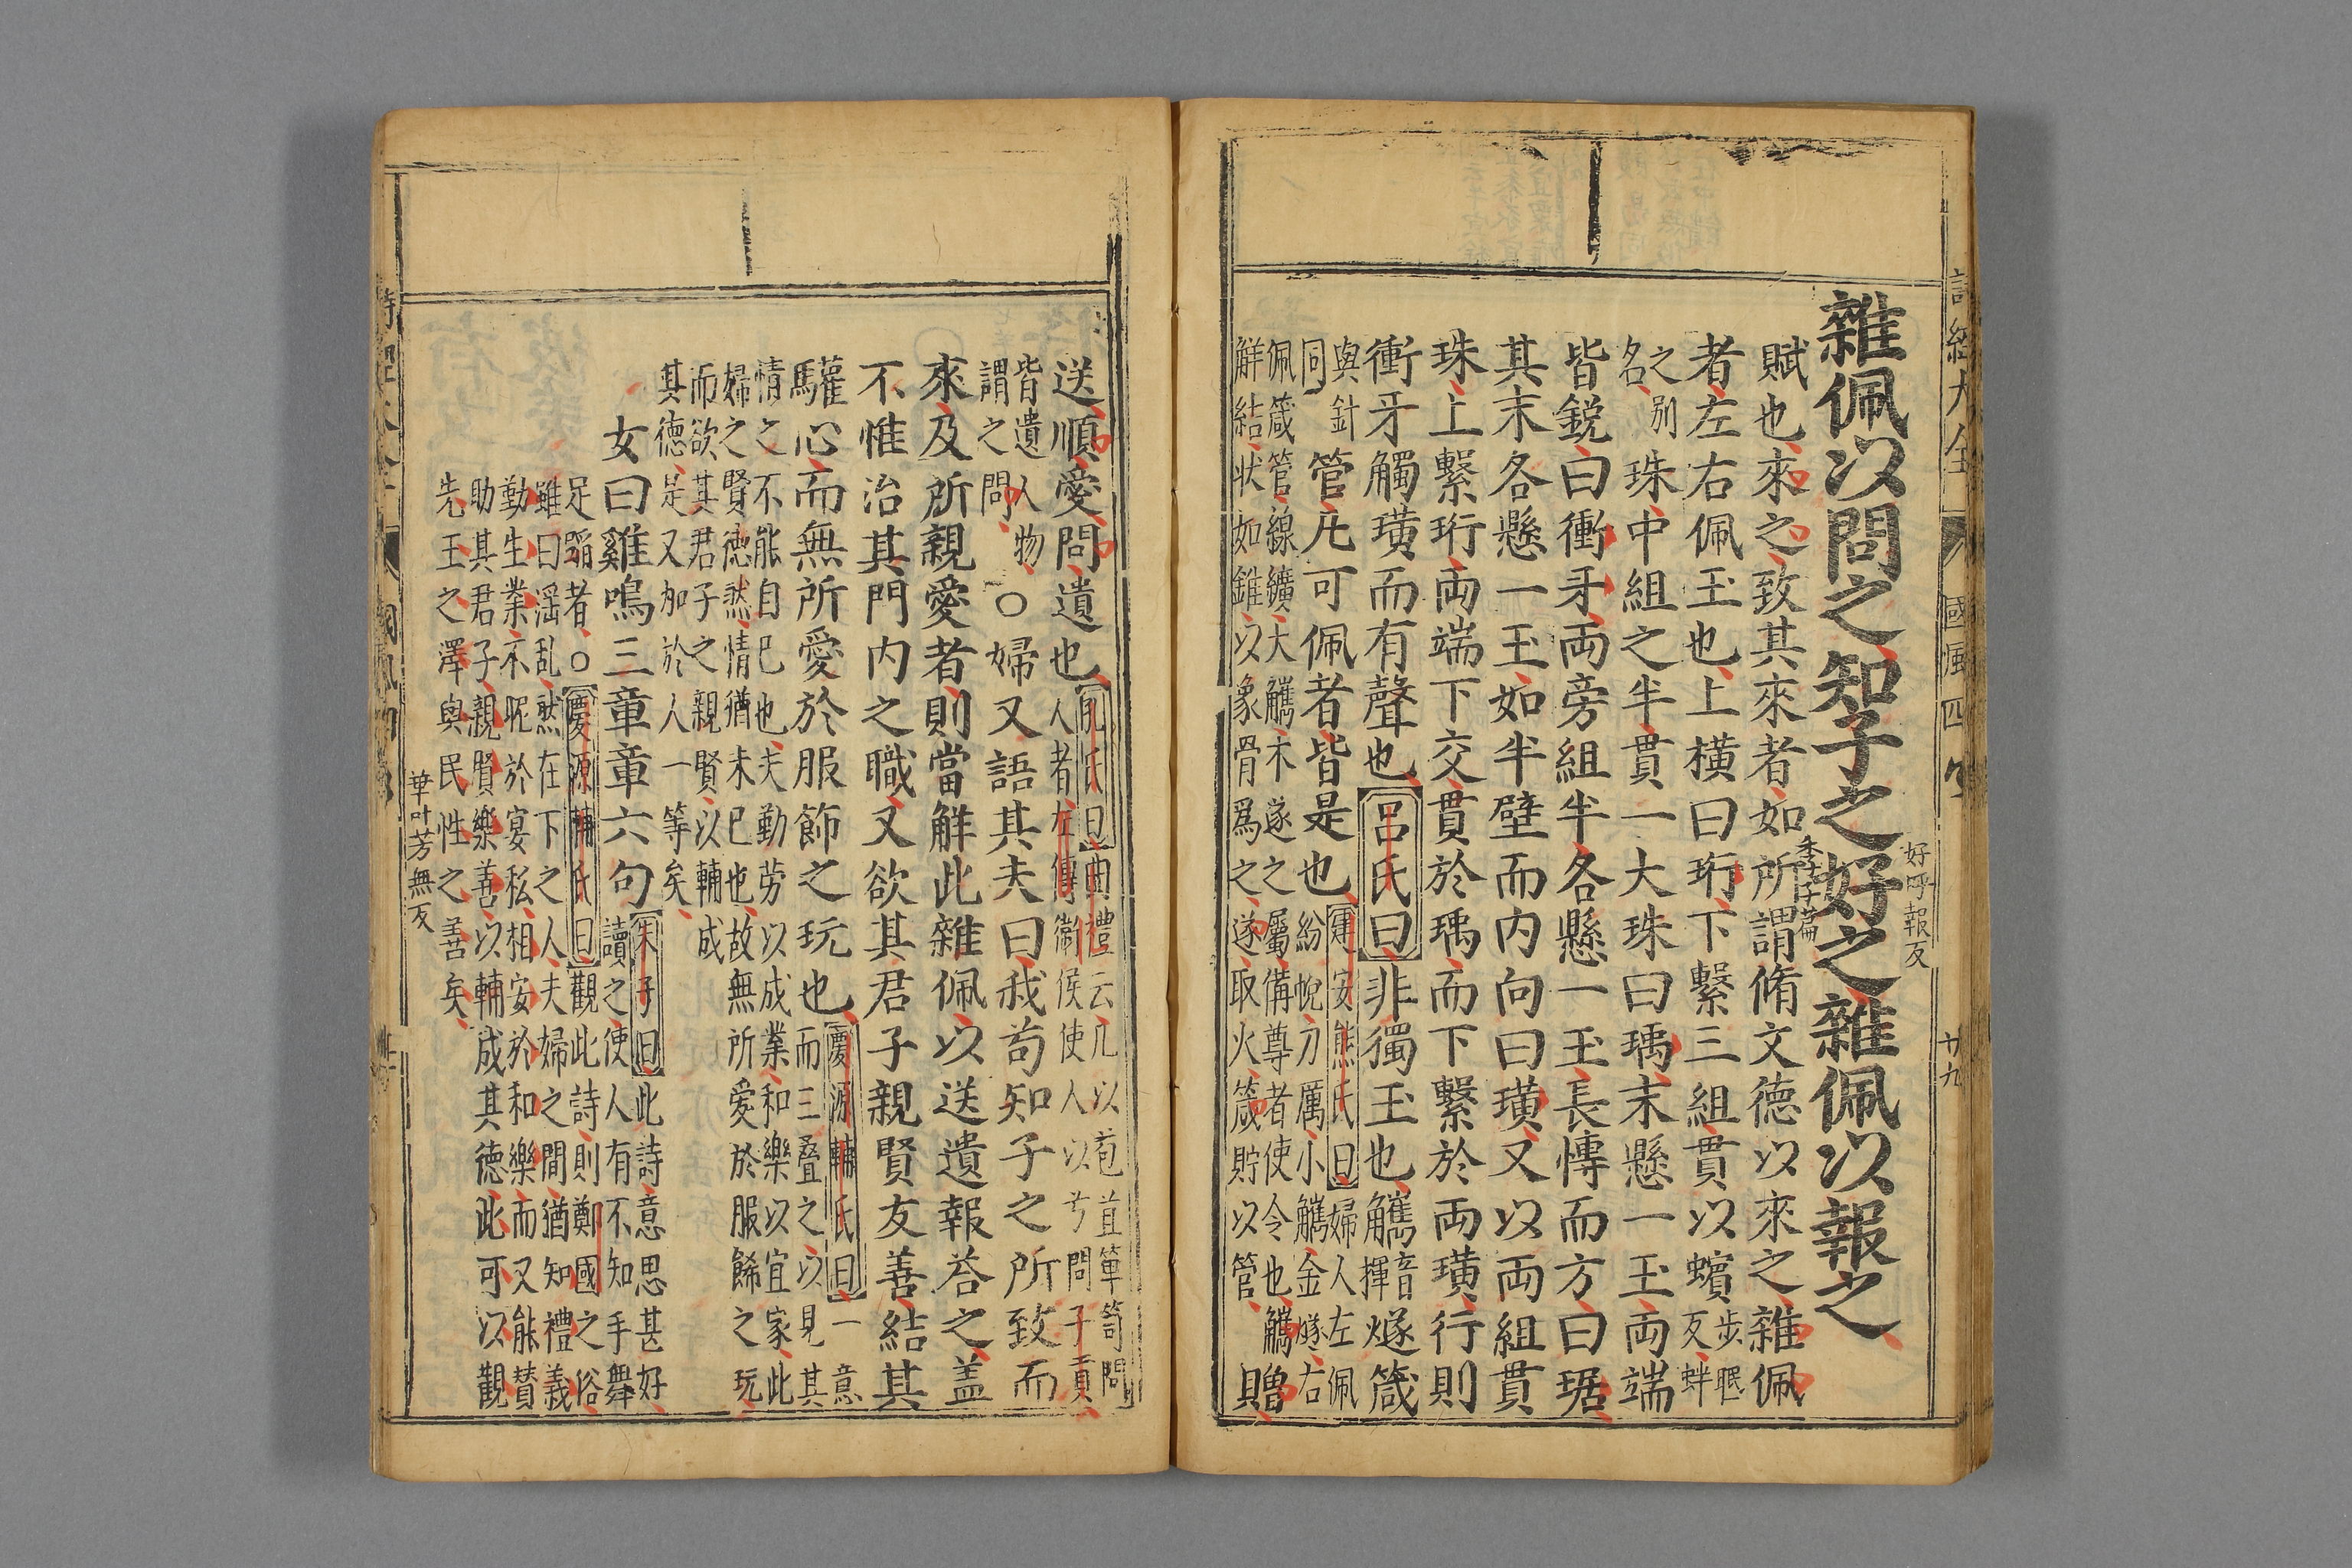 詩經大全 國風四 廿九
雜佩以問之知子之好之雜佩以報之
好呼報反
賦也來之致其來者如所謂脩文德以來之雜佩
季子篇
者左右佩玉也上橫曰珩下繫三組貫以蠙
步眠
反蚌
之別
名
珠中組之半貫一大珠曰瑀末懸一玉兩端
皆銳曰衝牙兩旁組半各懸一玉長慱而方曰琚
其末各懸一玉如半璧而內向曰璜又以兩組貫
珠上繫珩兩端下交貫於瑀而下繫於兩璜行則
衝牙觸璜而有聲也呂氏曰非獨玉也觿
音
揮
燧箴
與針
同
管凡可佩者皆是也
建安熊氏曰婦人左佩
紛帨刀厲小觿金燧右
佩箴管線纊大觿木遂之屬備尊者使令也觿
觧結狀如錐以象骨爲之遂取火箴貯以管
贈
送順愛問遺也
孔氏曰曲禮云凡以苞苴簞笥問
人者左傳衛侯使人以弓問子貢
皆遺人物
謂之問
○婦又語其夫曰我苟知子之所致而
來及所親愛者則當觧此雜佩以送遺報荅之盖
不惟治其門内之職又欲其君子親賢友善結其
驩心而無所愛於服飾之玩也
慶源輔氏曰一意
而三疊之以見其
情之不能自已也夫勤勞以成業和樂以宜家此
婦之賢徳然情猶未已也故無所愛於服餙之玩
而欲其君子之親賢以輔成
其徳足又加於人一等矣
女曰雞鳴三章章六句
朱子曰此詩意思甚好
讀之使人有不知手舞
足蹈者○慶源輔氏曰觀此詩則鄭國之俗
雖曰滛乱然在下之人夫婦之間猶知禮義
勤生業不昵於宴私相安於和樂而又能賛
助其君子親賢樂善以輔成其徳此可以觀
先王之澤與民性之善矣
華叶芳無反